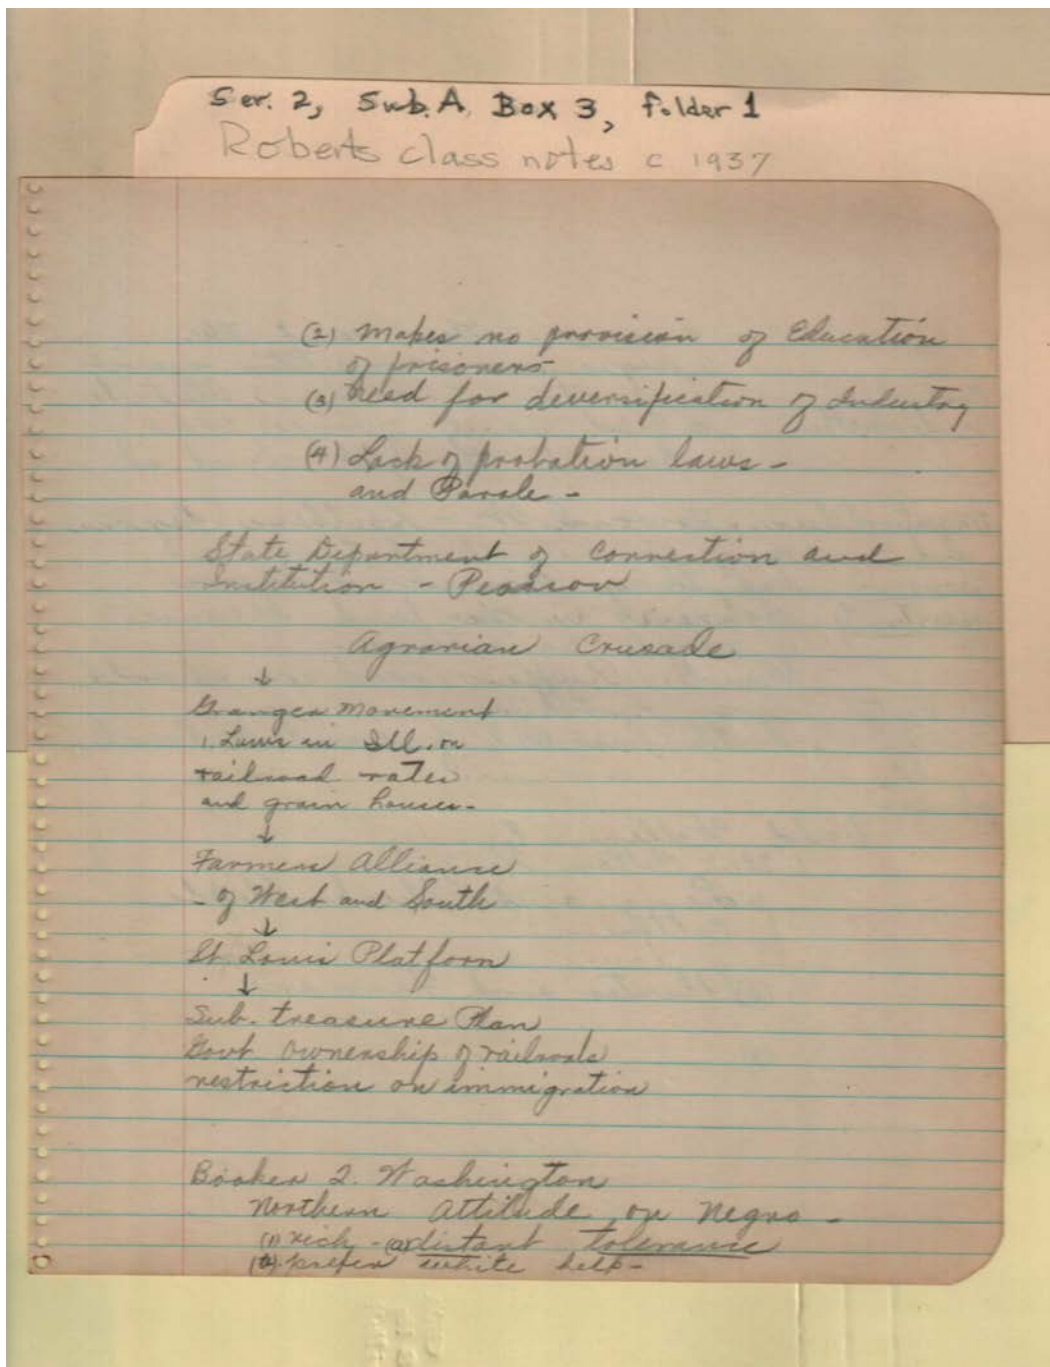 Ser. 2, Sub. A, Box 3, folder 1
Roberts class notes c 1937
(2) Makes no provision of Education
of prisoners
(3) Need for deversification of Industry
(4) Lack of probation laws -
and Parole -
State Department of Connection and
Institution - Pearson
Agrarian Crusade
↓
Granger Movement
1. Laws in Ill. on
railroad rates
and grain houses -
↓
Farmers Alliance
- of West and South
↓
St. Louis Platform
↓
Sub. treasure Plan
Govt ownership of railroads
restriction on immigration
Booker T. Washington
Northern attitude on Negro -
(1) rich - (a) distant tolerance
(b) prefer white help -